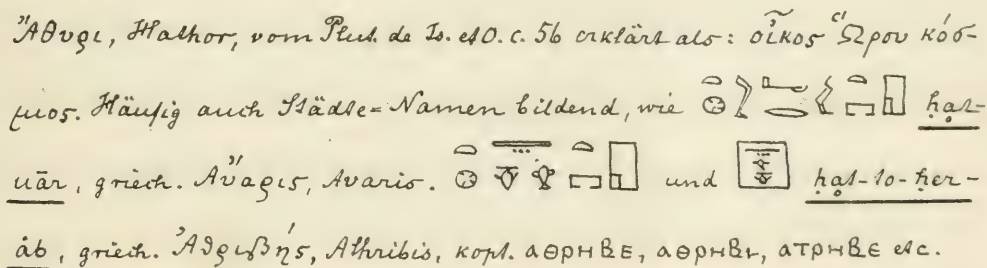 Ἄθυρι, Hathor, vom Plut. de Is. et O. c. 56 erklärt als: οἶκος Ὥρου κόσ-
μιος. Häufig auch Städte=Namen bildend, wie ḥat-
uār, griech. Αὔαρις, Avaris. und ḥat-to-ḥer-
àb, griech. Ἀθριβής, Athribis, kopt. ⲁⲑⲣⲏⲃⲉ, ⲁⲑⲣⲏⲃⲓ, ⲁⲧⲣⲏⲃⲉ etc.